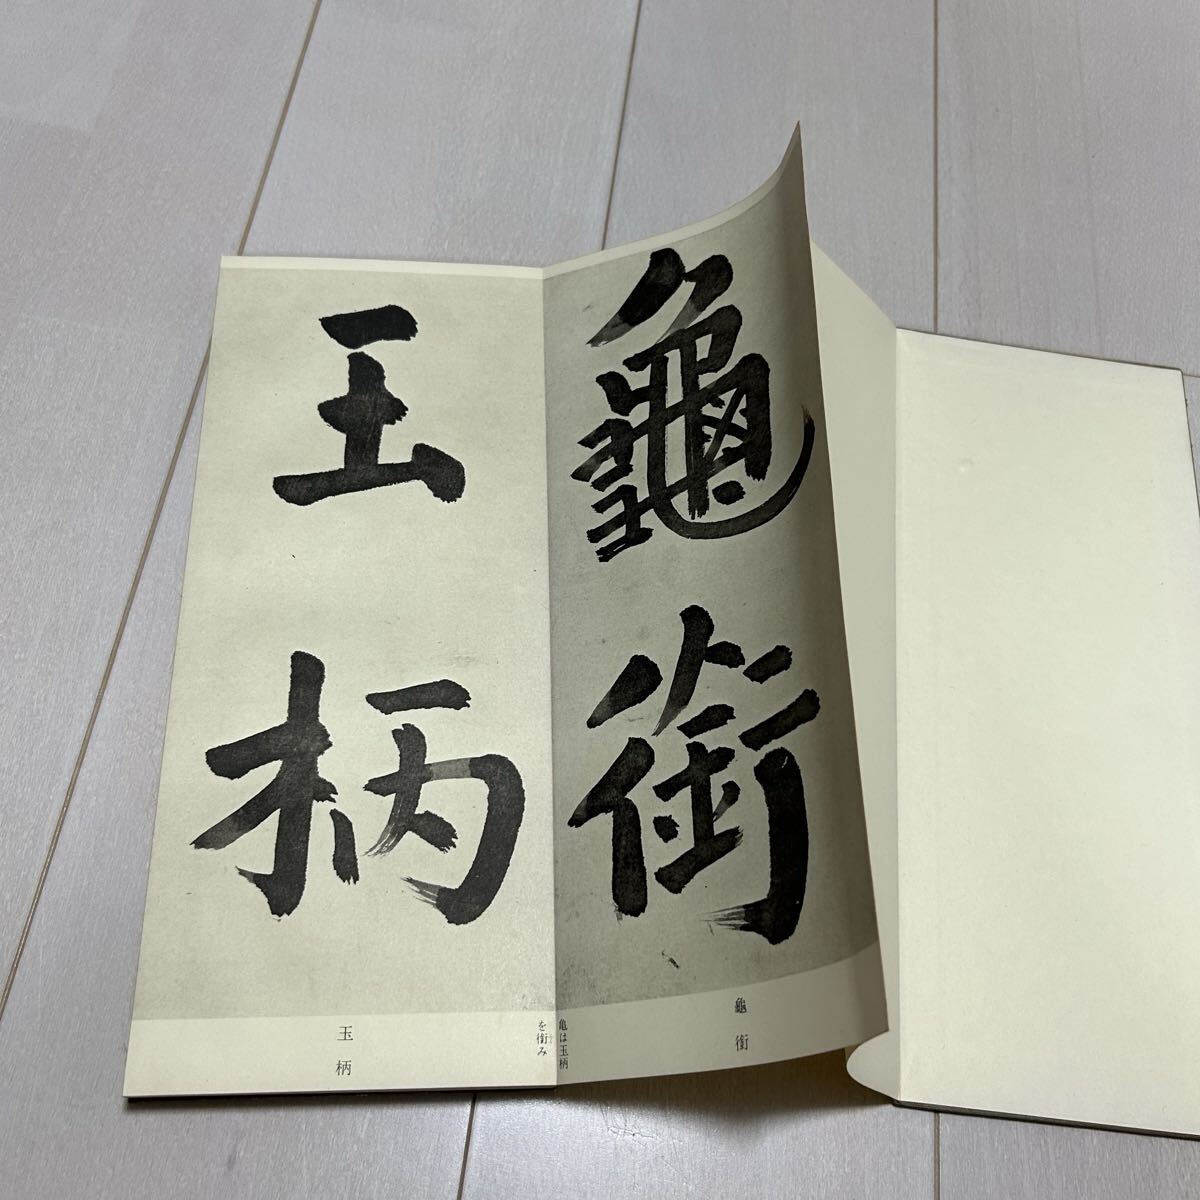 龜銜
玉柄
龜銜
亀は玉柄
を銜み
玉柄